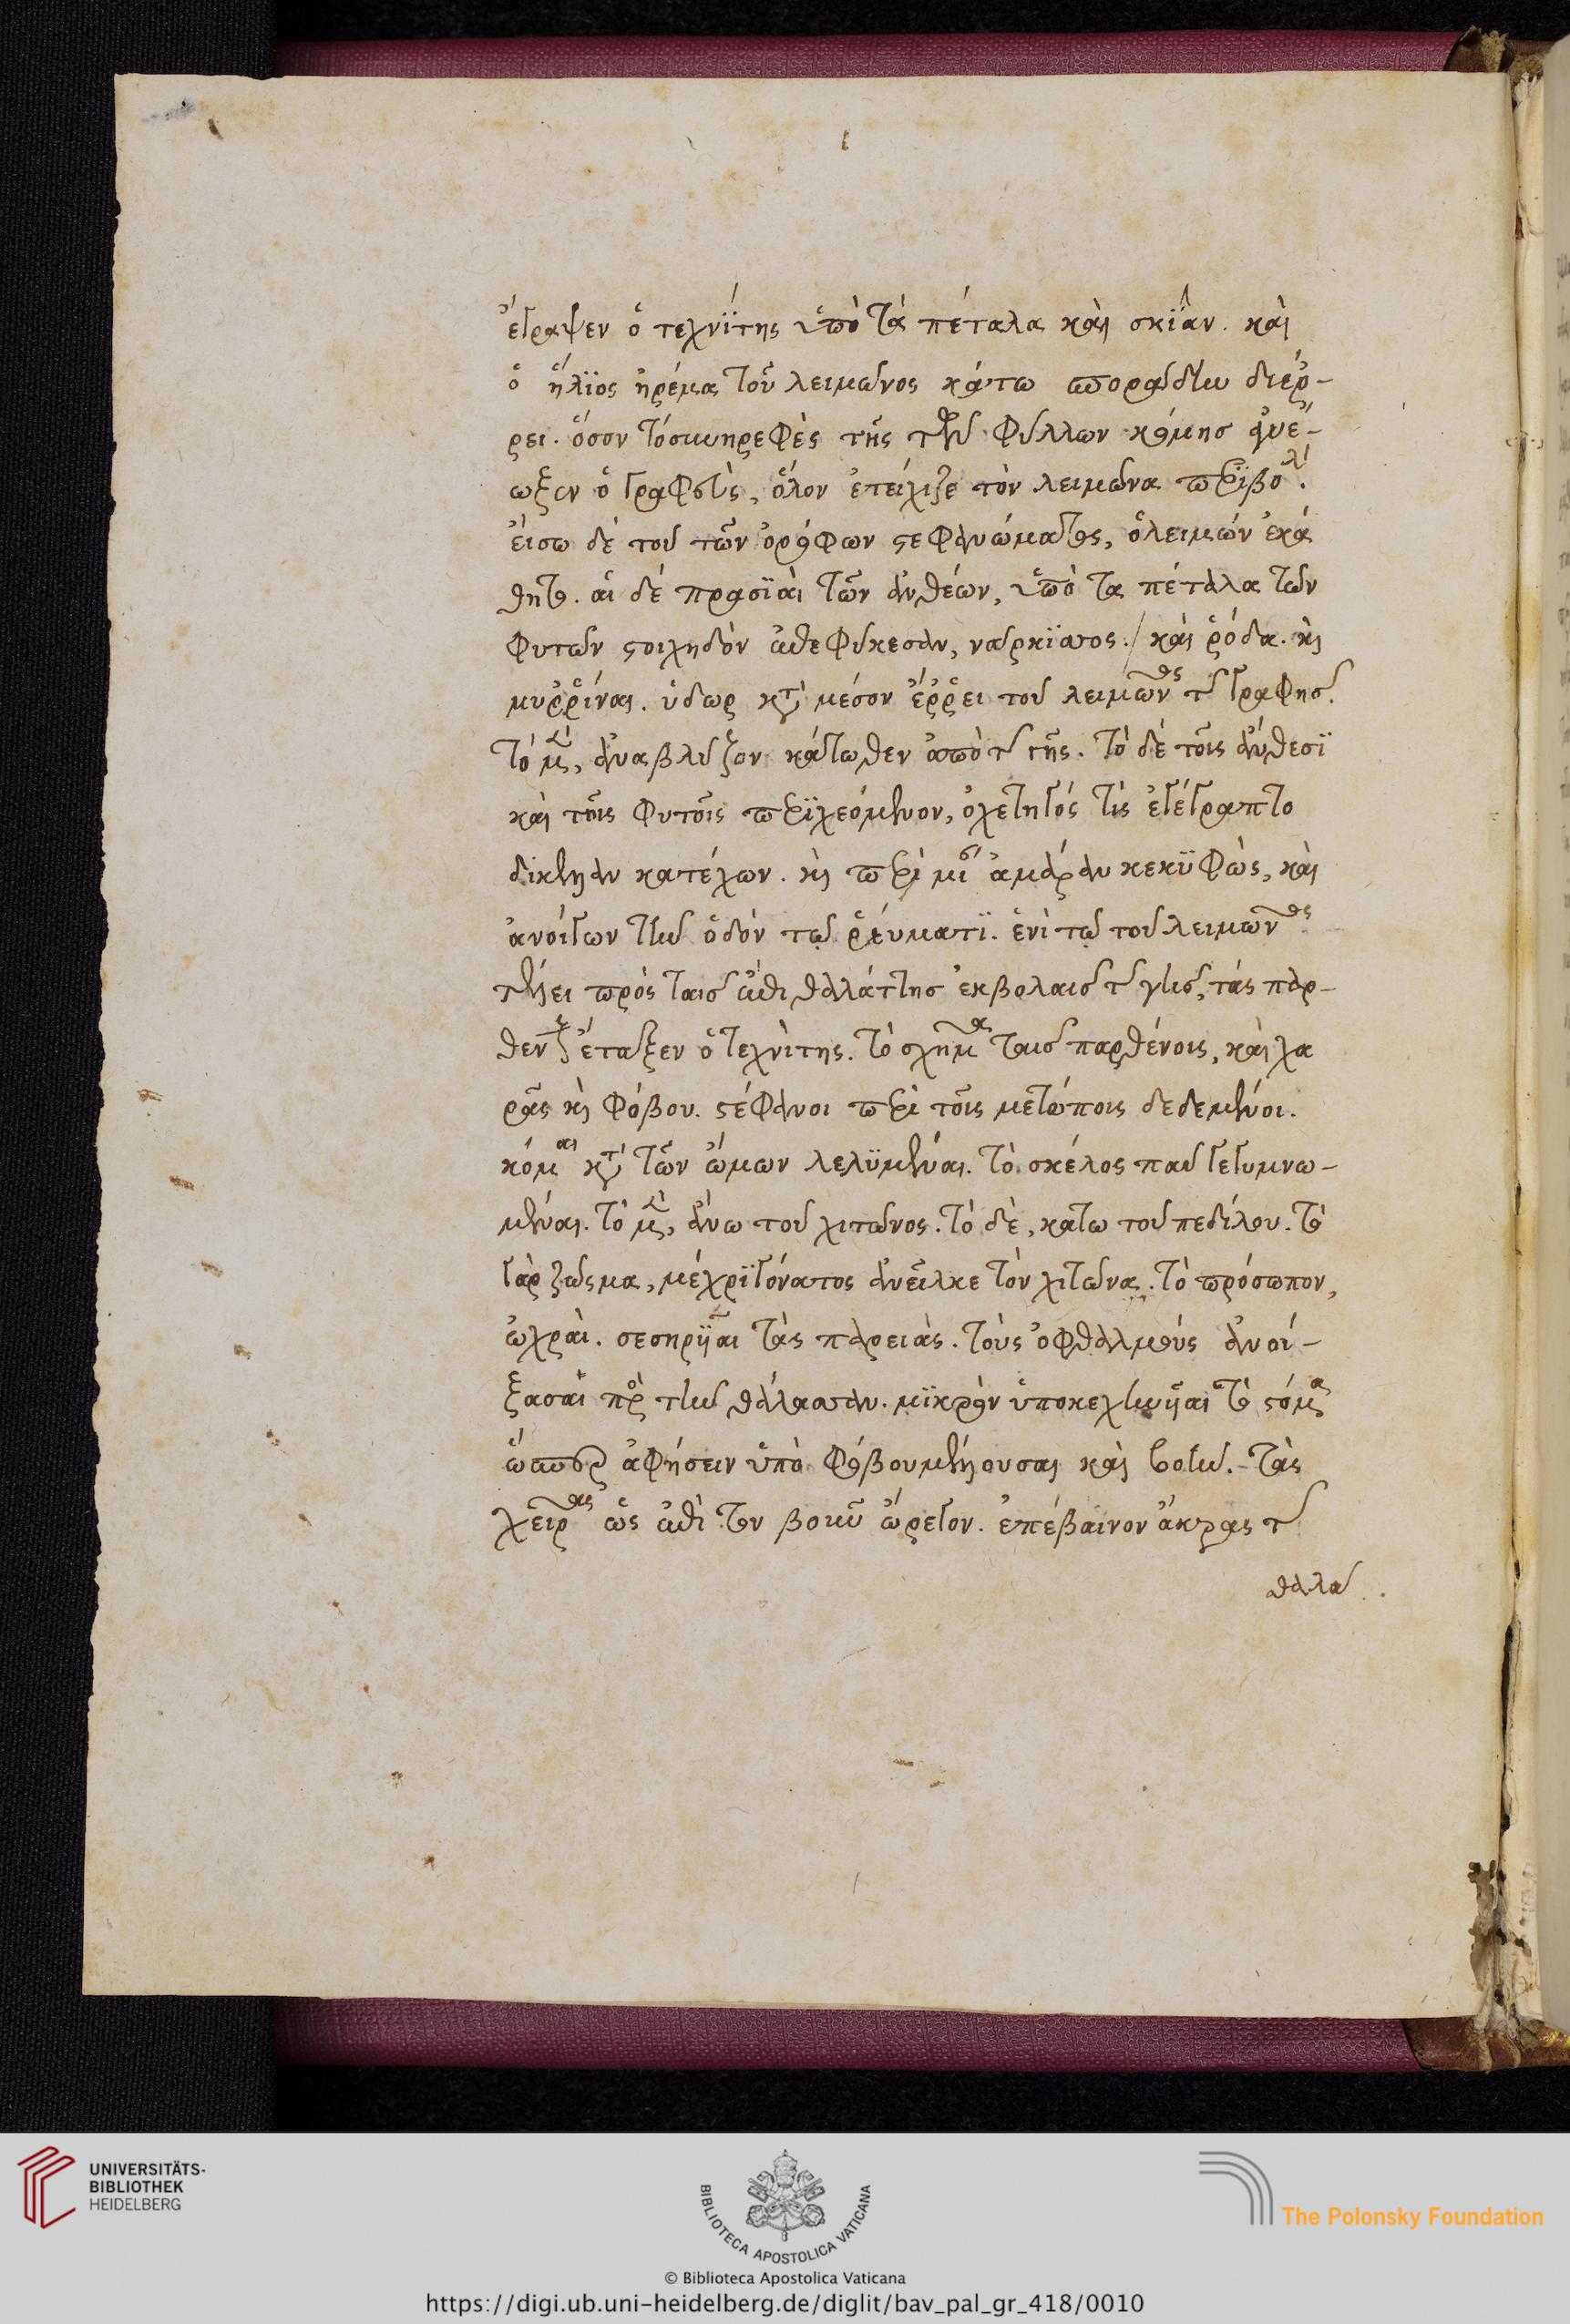 ἔγραψεν ὁ τεχνΐτης ὑπὸ τὰ πέταλα καὶ σκϊὰν. καὶ
ὁ ἥλϊος ἠρέμα τοῦ λειμῶνος κάτω σποράδην διέρ-
ρει. ὅσον τὸ συνηρεφὲς τῆς τῶν φύλλων κόμης ἀνέ-
ωξεν ὁ γραφεὺς, ὅλον ἐτείχιζε τὸν λειμῶνα περϊβολή.
εἴσω δὲ τοῦ τῶν ὀρόφων στεφανώματος, ὁ λειμὼν ἐκά
θητο. αἱ δὲ πρασϊαὶ τῶν ἀνθέων, ὑπὸ τα πέταλα τῶν
φυτῶν στοιχηδὸν ἐπεφύκεσαν, ναρκϊσσος. / καὶ ῥόδα. καὶ
μυῤῥίναι. ὕδωρ κατὰ μέσον ἔῤῥει τοῦ λειμῶνος τῆς γραφῆς.
τὸ μὲν, ἀναβλύζον κάτωθεν ἀπὸ τῆς γῆς. τὸ δὲ τοῖς ἄνθεσϊ
καὶ τοῖς φυτοῖς περϊχεόμενον, ὀχετηγός τίς ἐγέγραπτο
δίκελλαν κατέχων. καὶ περὶ μίαν ἀμάραν κεκϋφὼς, καὶ
ἀνοίγων τὴν ὁδὸν τῷ ῥεύματϊ. ἐνὶ τῷ τοῦ λειμῶνος
τέλει πρὸς ταῖς ἐπὶ θαλάττης ἐκβολαῖς τῆς γῆς, τὰς παρ-
θένους ἔταξεν ὁ τεχνὶτης. τὸ σχῆμα ταῖς παρθένοις, καὶ χα
ρᾶς καὶ φόβου. στέφανοι περὶ τοῖς μετώποις δεδεμένοι.
κόμαι κατὰ τῶν ὤμων λελϋμέναι. τὸ σκέλος πᾶν γεγυμνω-
μέναι. τὸ μὲν, ἄνω τοῦ χιτῶνος. τὸ δὲ, κάτω τοῦ πεδίλου. τὸ
γὰρ ζῶσμα, μέχρϊ γόνατος ἀνεῖλκε τὸν χιτῶνα. τὸ πρόσωπον,
ὠχραὶ. σεσηρυῖαι τὰς παρειὰς. τοὺς ὀφθαλμοὺς ἀνοί-
ξασαι πρὸς τὴν θάλασσαν. μϊκρὸν ὑποκεχηνυῖαι τὸ στόμα
ὥσπερ ἀφήσειν ὑπὸ φόβου μέλλουσαι καὶ βοήν. τὰς
χεῖρας ὡς ἐπὶ τὸν βοῦν ὤρεγον. ἐπέβαϊνον ἄκρας τῆς
θαλασ
UNIVERSITÄTS-
BIBLIOTHEK
HEIDELBERG
BIBLIOTECA APOSTOLICA VATICANA
The Polonsky Foundation
© Biblioteca Apostolica Vaticana
https://digi.ub.uni-heidelberg.de/diglit/bav_pal_gr_418/0010